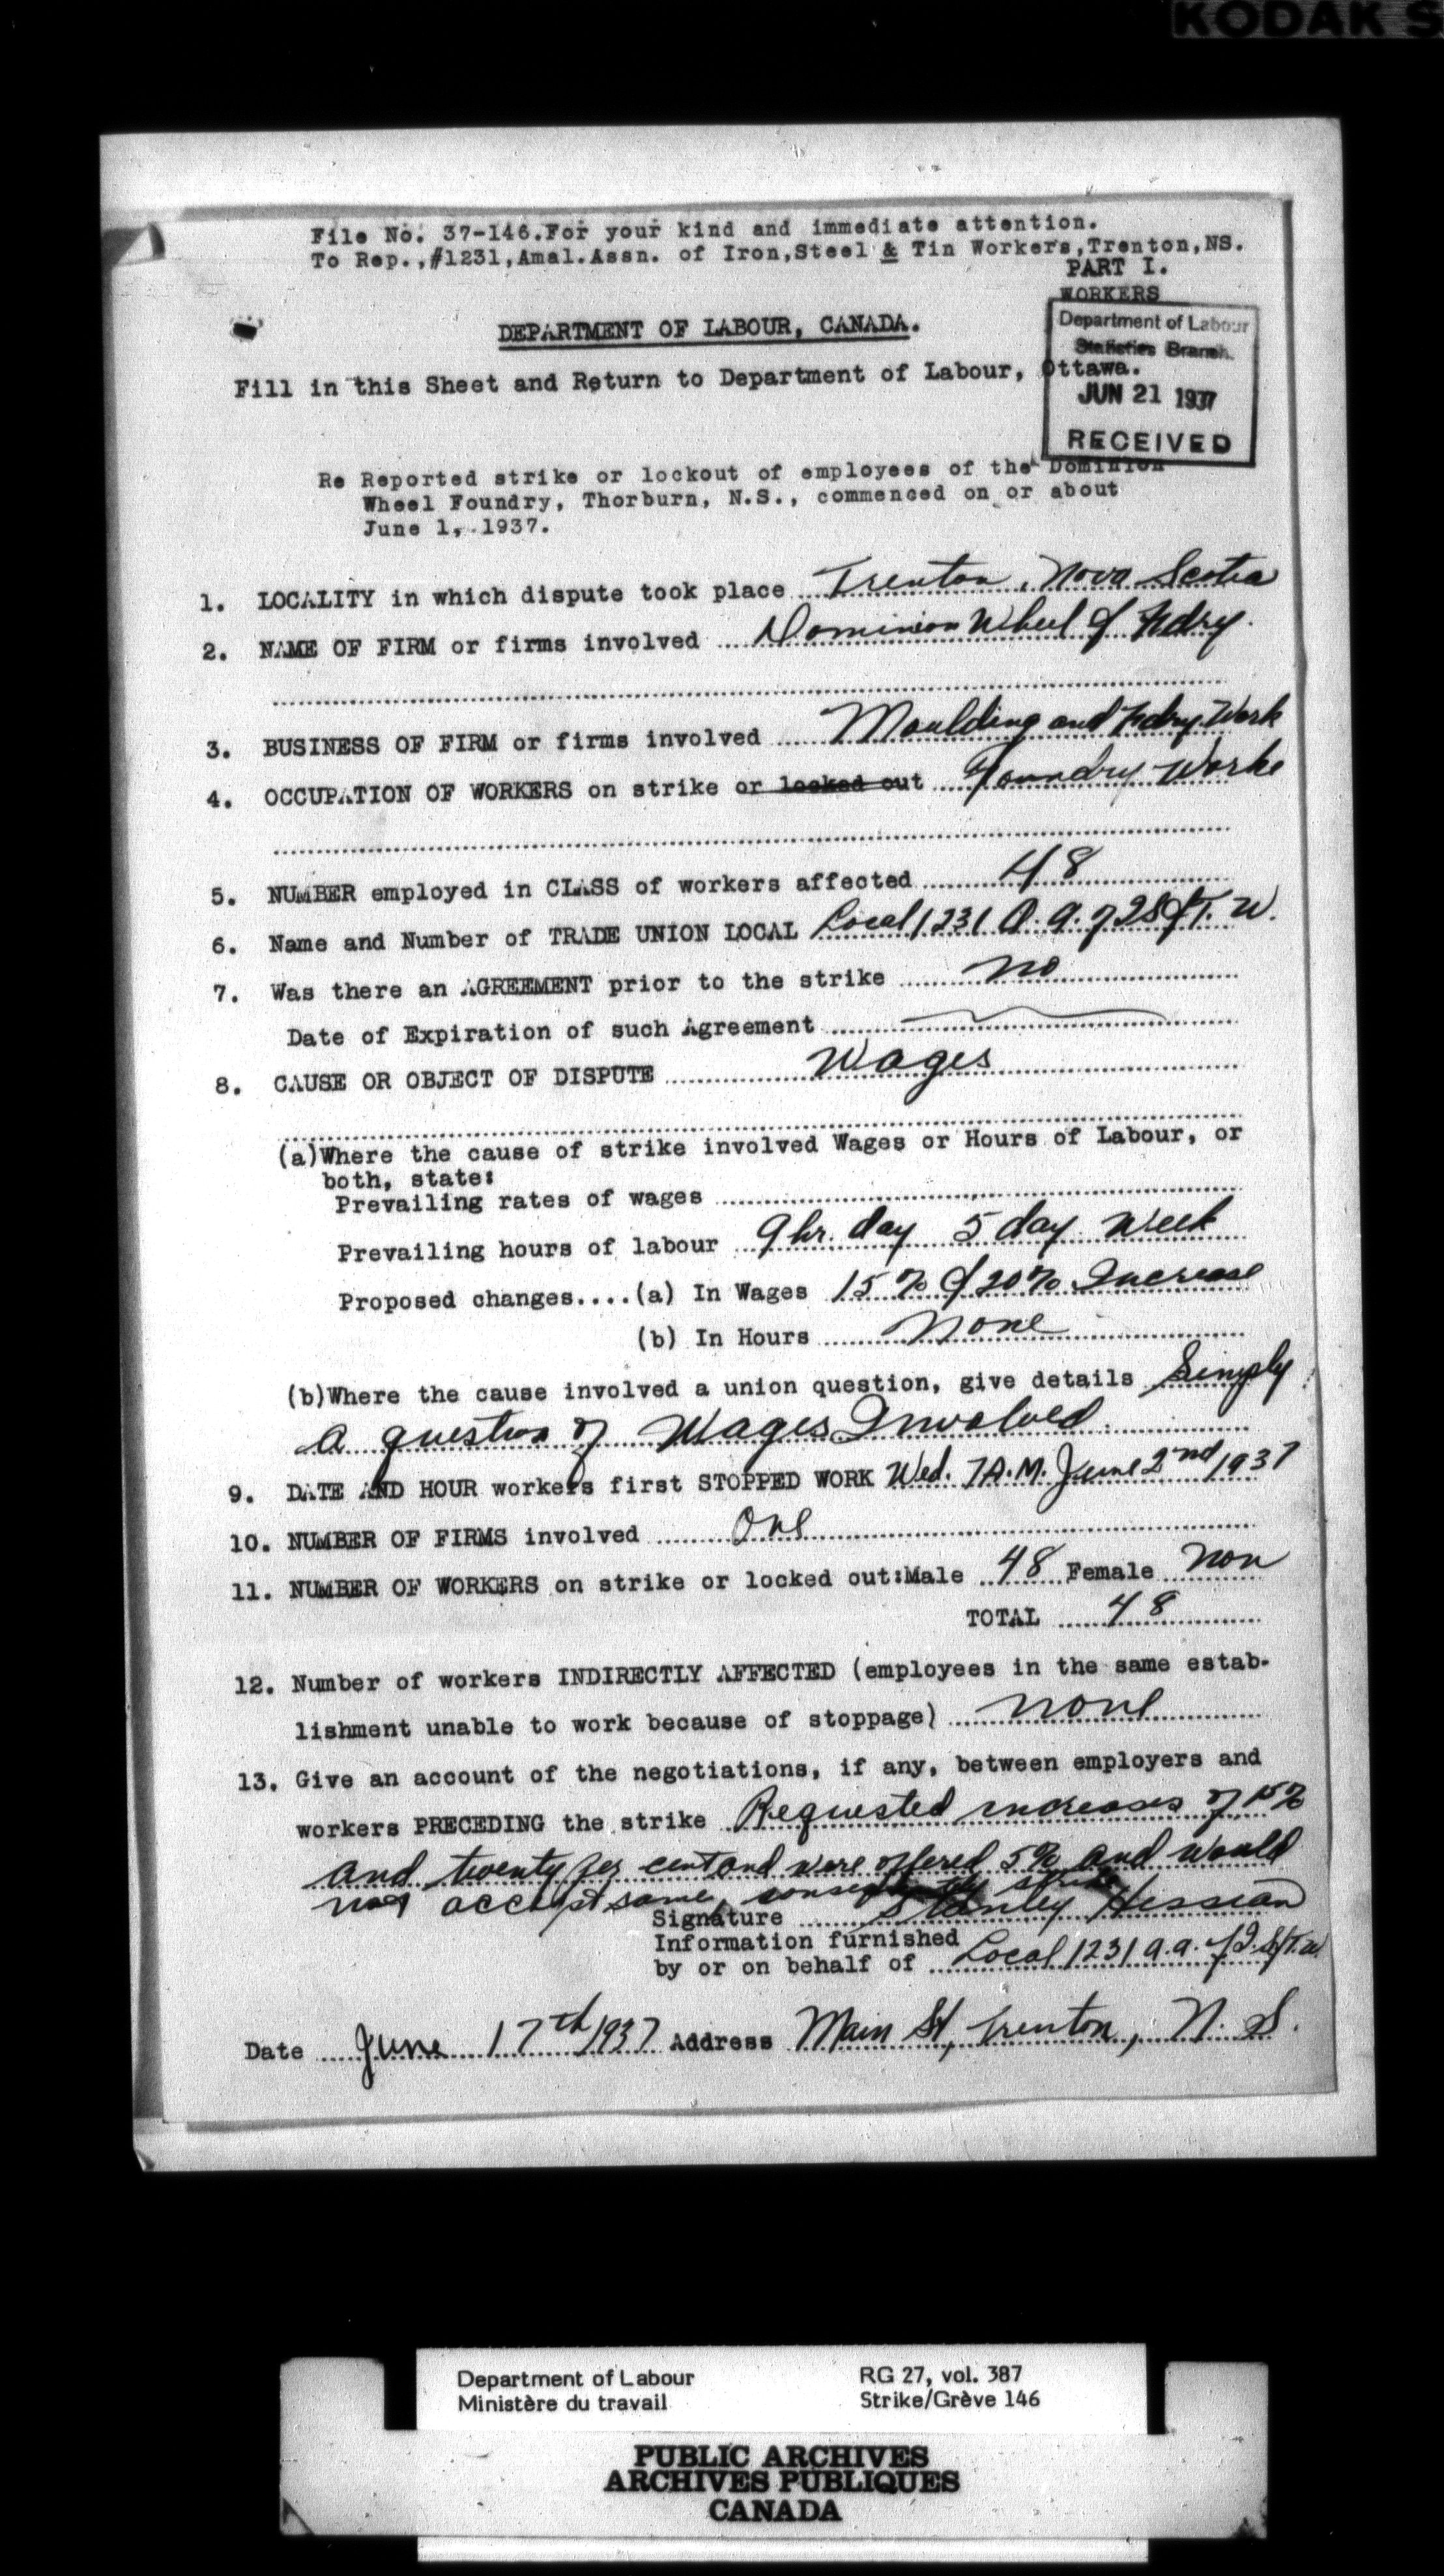 KODAK S
File No. 37-146.For your kind and immediate attention.
To Rep.,#1231,Amal.Assn. of Iron,Steel & Tin Workers,Trenton,NS.
PART I.
WORKERS
DEPARTMENT OF LABOUR, CANADA.
Department of Labour
Statistics Branch.
JUN 21 1937
RECEIVED
Fill in this Sheet and Return to Department of Labour, Ottawa.
Re Reported strike or lockout of employees of the Dominion
Wheel Foundry, Thorburn, N.S., commenced on or about
June 1, 1937.
1. LOCALITY in which dispute took place Trenton, Nova Scotia
2. NAME OF FIRM or firms involved Dominion Wheel & Fdry.
3. BUSINESS OF FIRM or firms involved Moulding and Fdry. Work
4. OCCUPATION OF WORKERS on strike or locked out Foundry Works
5. NUMBER employed in CLASS of workers affected 48
6. Name and Number of TRADE UNION LOCAL Local 1231 A. A. of I S & T. W.
7. Was there an AGREEMENT prior to the strike no
Date of Expiration of such Agreement
8. CAUSE OR OBJECT OF DISPUTE Wages
(a)Where the cause of strike involved Wages or Hours of Labour, or
both, state:
Prevailing rates of wages
Prevailing hours of labour 9 hr. day 5 day Week
Proposed changes....(a) In Wages 15 % & 20% Increase
(b) In Hours None
(b)Where the cause involved a union question, give details Simply
a question of Wages Involved.
9. DATE AND HOUR workers first STOPPED WORK Wed. 7 A.M. June 2nd 1937
10. NUMBER OF FIRMS involved One
11. NUMBER OF WORKERS on strike or locked out:Male 48 Female Non
TOTAL 48
12. Number of workers INDIRECTLY AFFECTED (employees in the same estab-
lishment unable to work because of stoppage) none
13. Give an account of the negotiations, if any, between employers and
workers PRECEDING the strike Requested increases of 15%
and twenty per cent and were offered 5% and would
not accept same, consequently strike
Signature Stanley Hessian
Information furnished
by or on behalf of Local 1231 A.A. of I. S & T. W.
Date June 17th 1937 Address Main St, Trenton, N. S.
Department of Labour
Ministère du travail
RG 27, vol. 387
Strike/Grève 146
PUBLIC ARCHIVES
ARCHIVES PUBLIQUES
CANADA